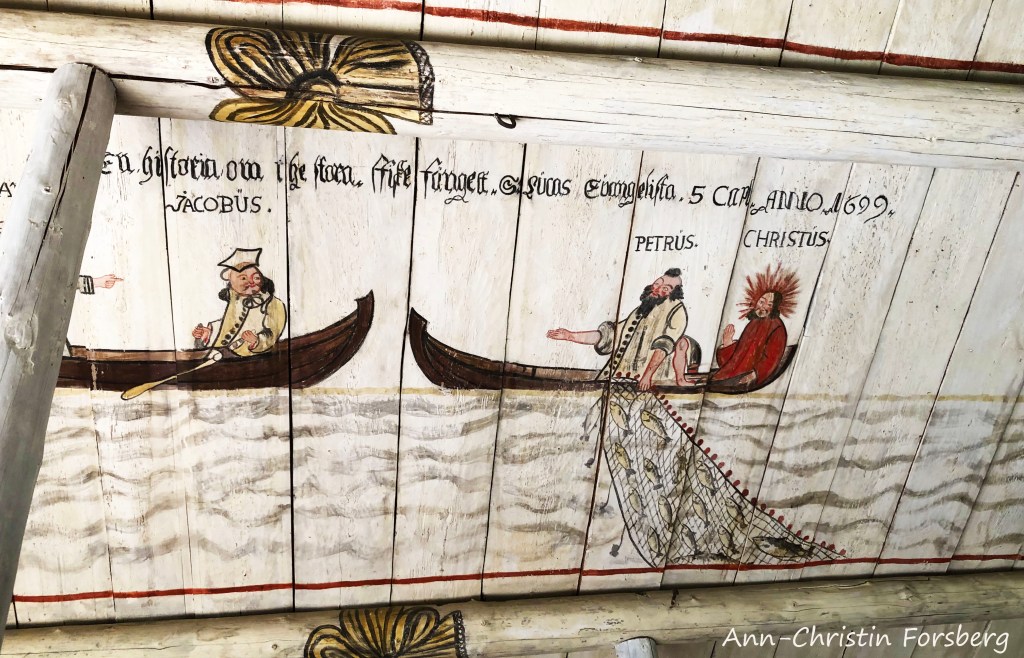 En historia om the stora Fiske fänget. S: Lucas Evangelista. 5 CAP. ANNO. 1699.
JACOBÜS.
PETRÚS. CHRISTÚS.
Ann-Christin Forsberg